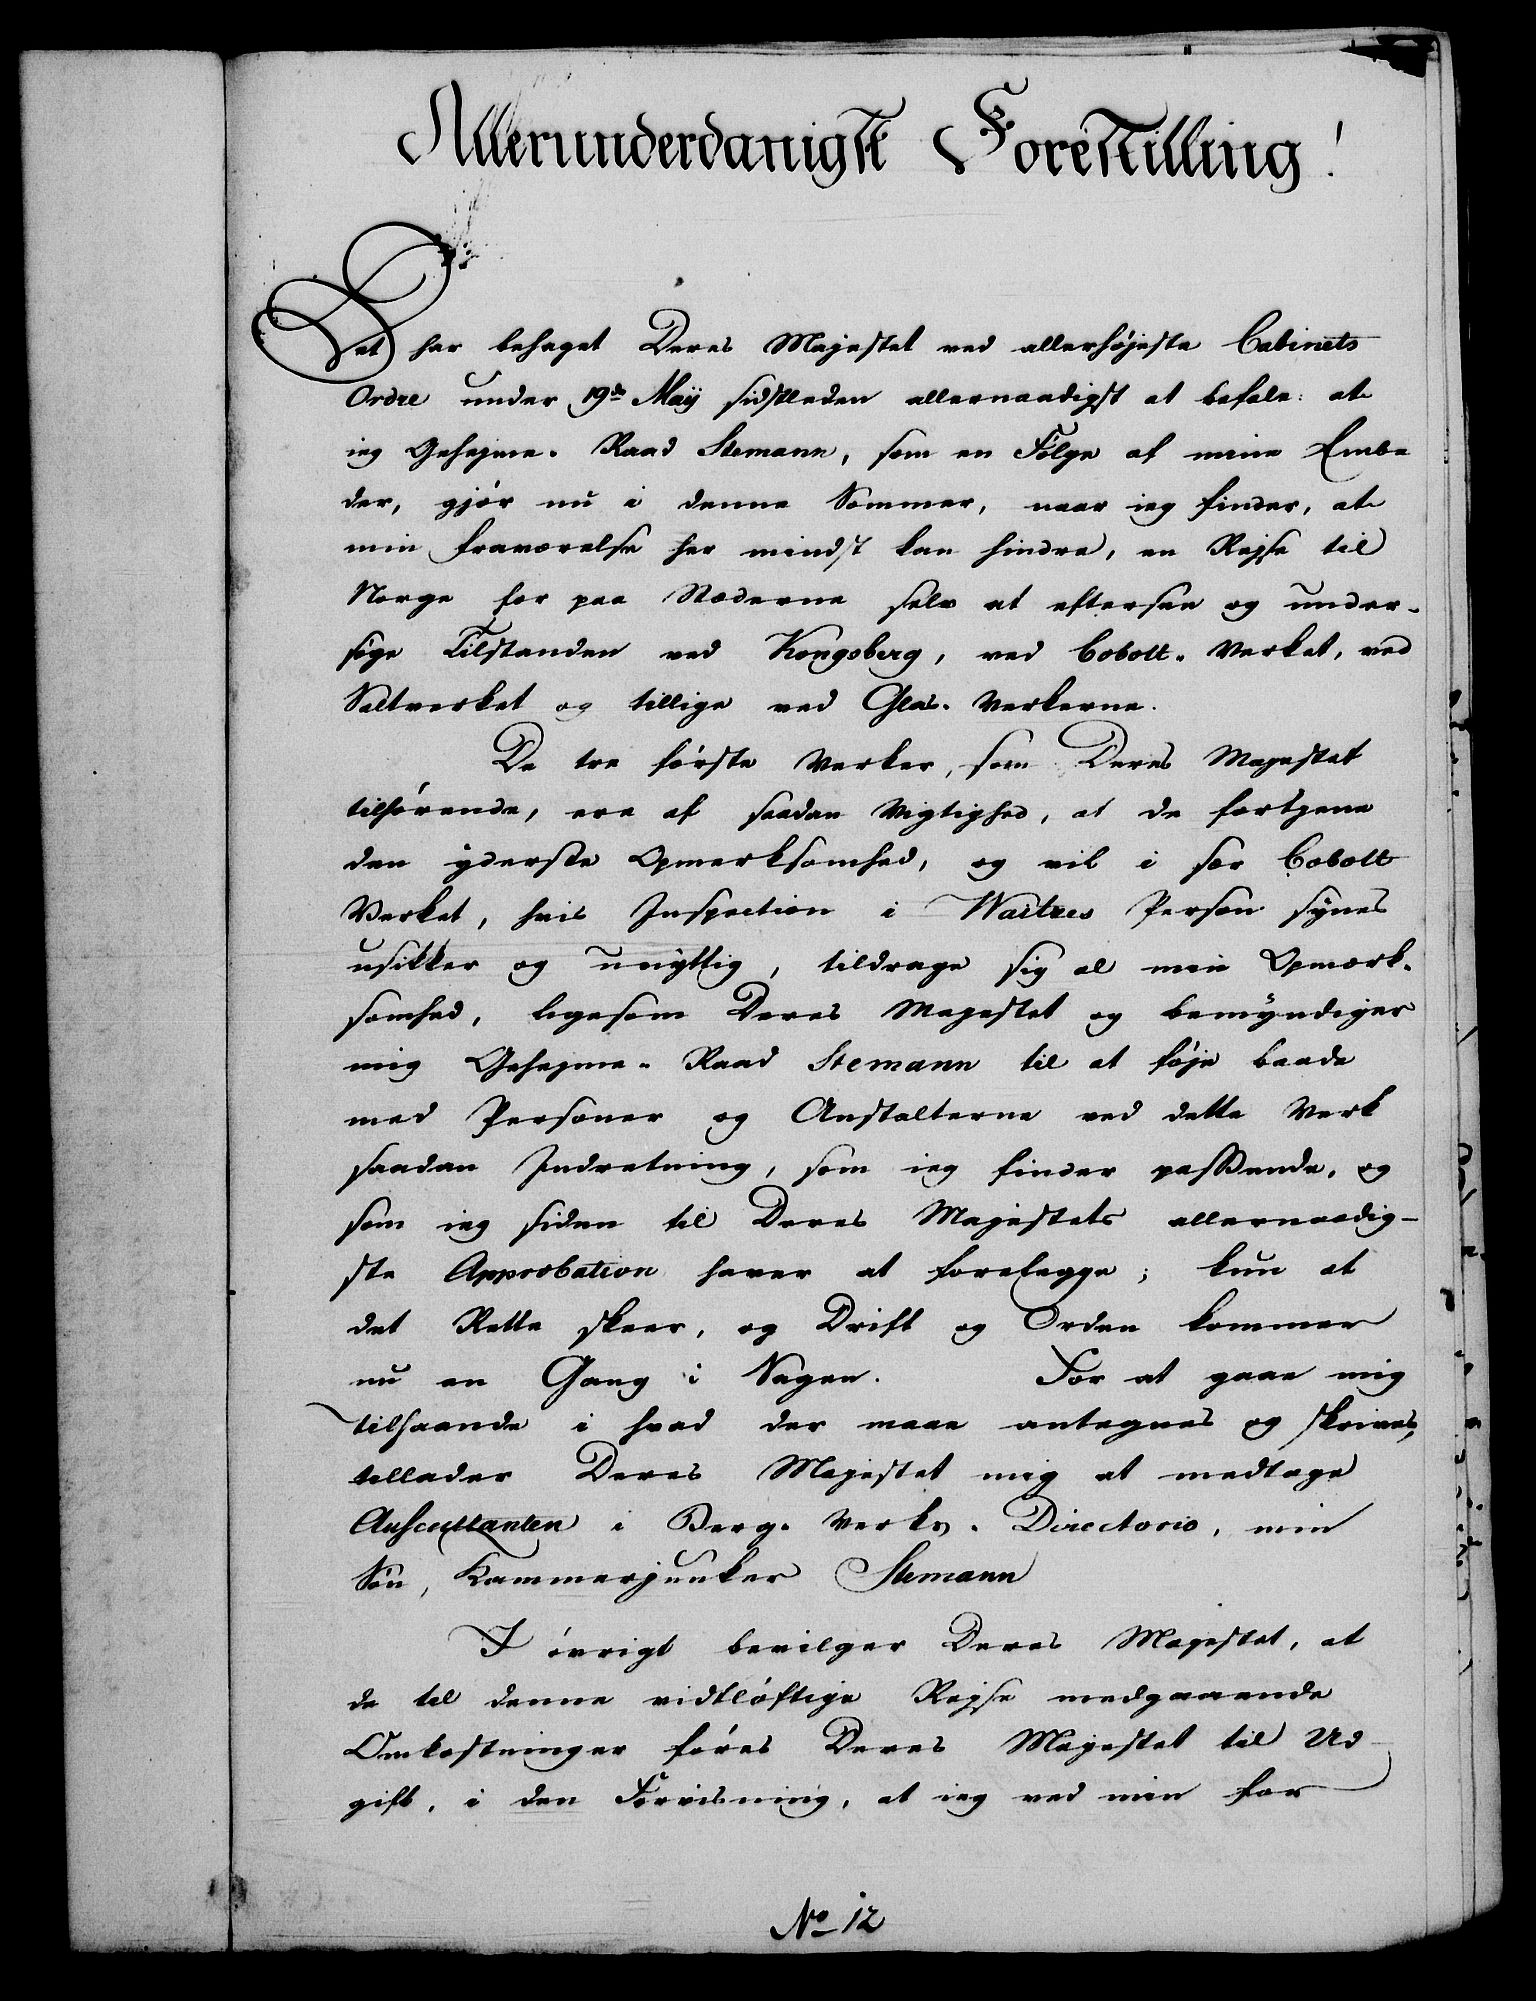 Allerunderdanigst Forestilling!
Det har behaget Deres Majestet ved allerhøjeste Cabinets
Ordre under 19de Maij sidstleden allernaadigst at befale: at
ieg Gehejme-Raad Stemann, som en Følge af mine Embe
der, gjør nu i denne Sommer, naar ieg finder, at
min fraværelse her mindst kan hindre, en Rejse til
Norge for paa Stæderne selv at eftersee og under-
søge Tilstanden ved Kongsberg, ved Cobolt-Verket, ved
Saltverket og tillige ved Glas-Verkerne.
De tre første Verker, som Deres Majestet
tilhørende, ere af saadan Vigtighed, at de fortjene
den yderste Opmerksomhed, og vil i sær Cobolt
Verket, hvis Inspection i Waitzes Person synes
usikker og unyttig, tildrage sig al min Opmerk-
somhed, ligesom Deres Majestet og bemyndiger
mig Gehejme-Raad Stemann til at føje baade
med Personer og Anstalterne ved dette Verk
saadan Indretning, som ieg finder passende, og
som ieg siden til Deres Majestets allernaadig-
ste Approbation haver at forelegge; kun at
det Rette skeer, og Drift og Orden kommer
nu en Gang i Sagen. For at gaae mig
tilhaande i hvad der maae antegnes og skrives,
tillader Deres Majestet mig at medtage
Auscultanten i Berg-Verks-Directorio, min
Søn, Kammerjunker Stemann
I øvrigt bevilger Deres Majestet, at
de til denne vidtløftige Rejse medgaaende
Omkostninger føres Deres Majestet til Ud-
gift, i den Forvisning, at ieg ved min for
No 12